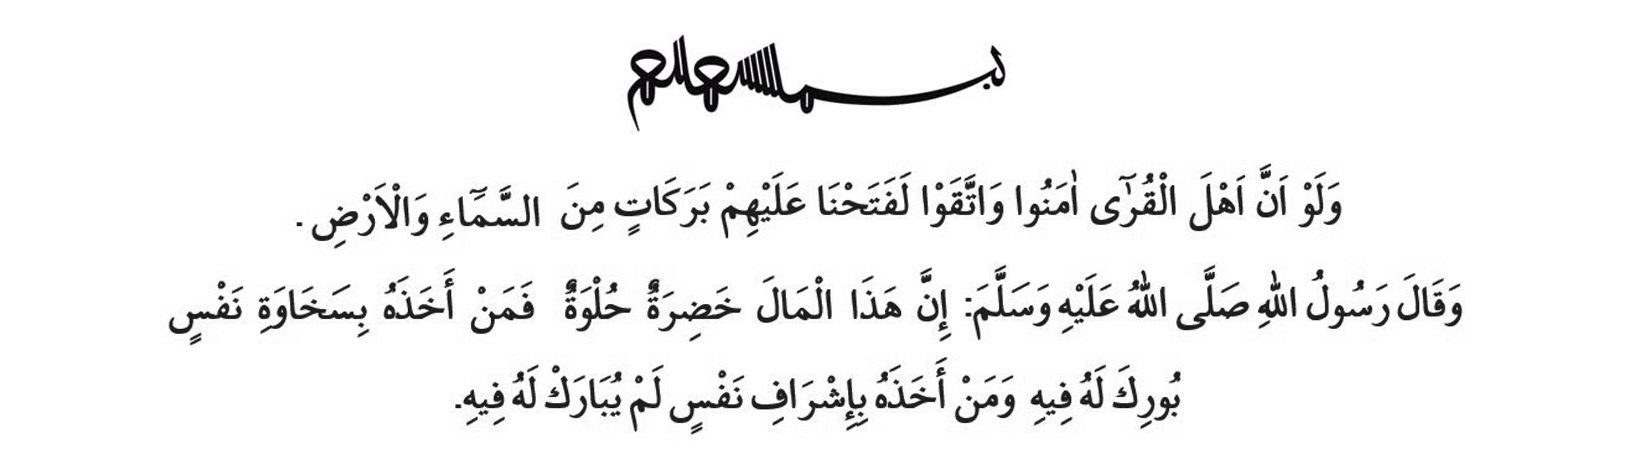 بسم الله الرحمن الرحيم
وَلَوْ اَنَّ اَهْلَ الْقُرٰٓى اٰمَنُوا وَاتَّقَوْا لَفَتَحْنَا عَلَيْهِمْ بَرَكَاتٍ مِنَ السَّمَٓاءِ وَالْاَرْضِ .
وَقَالَ رَسُولُ اللهِ صَلَّى اللهُ عَلَيْهِ وَسَلَّمَ: إِنَّ هَذَا الْمَالَ خَضِرَةٌ حُلْوَةٌ فَمَنْ أَخَذَهُ بِسَخَاوَةِ نَفْسٍ
بُورِكَ لَهُ فِيهِ وَمَنْ أَخَذَهُ بِإِشْرَافِ نَفْسٍ لَمْ يُبَارَكْ لَهُ فِيهِ.